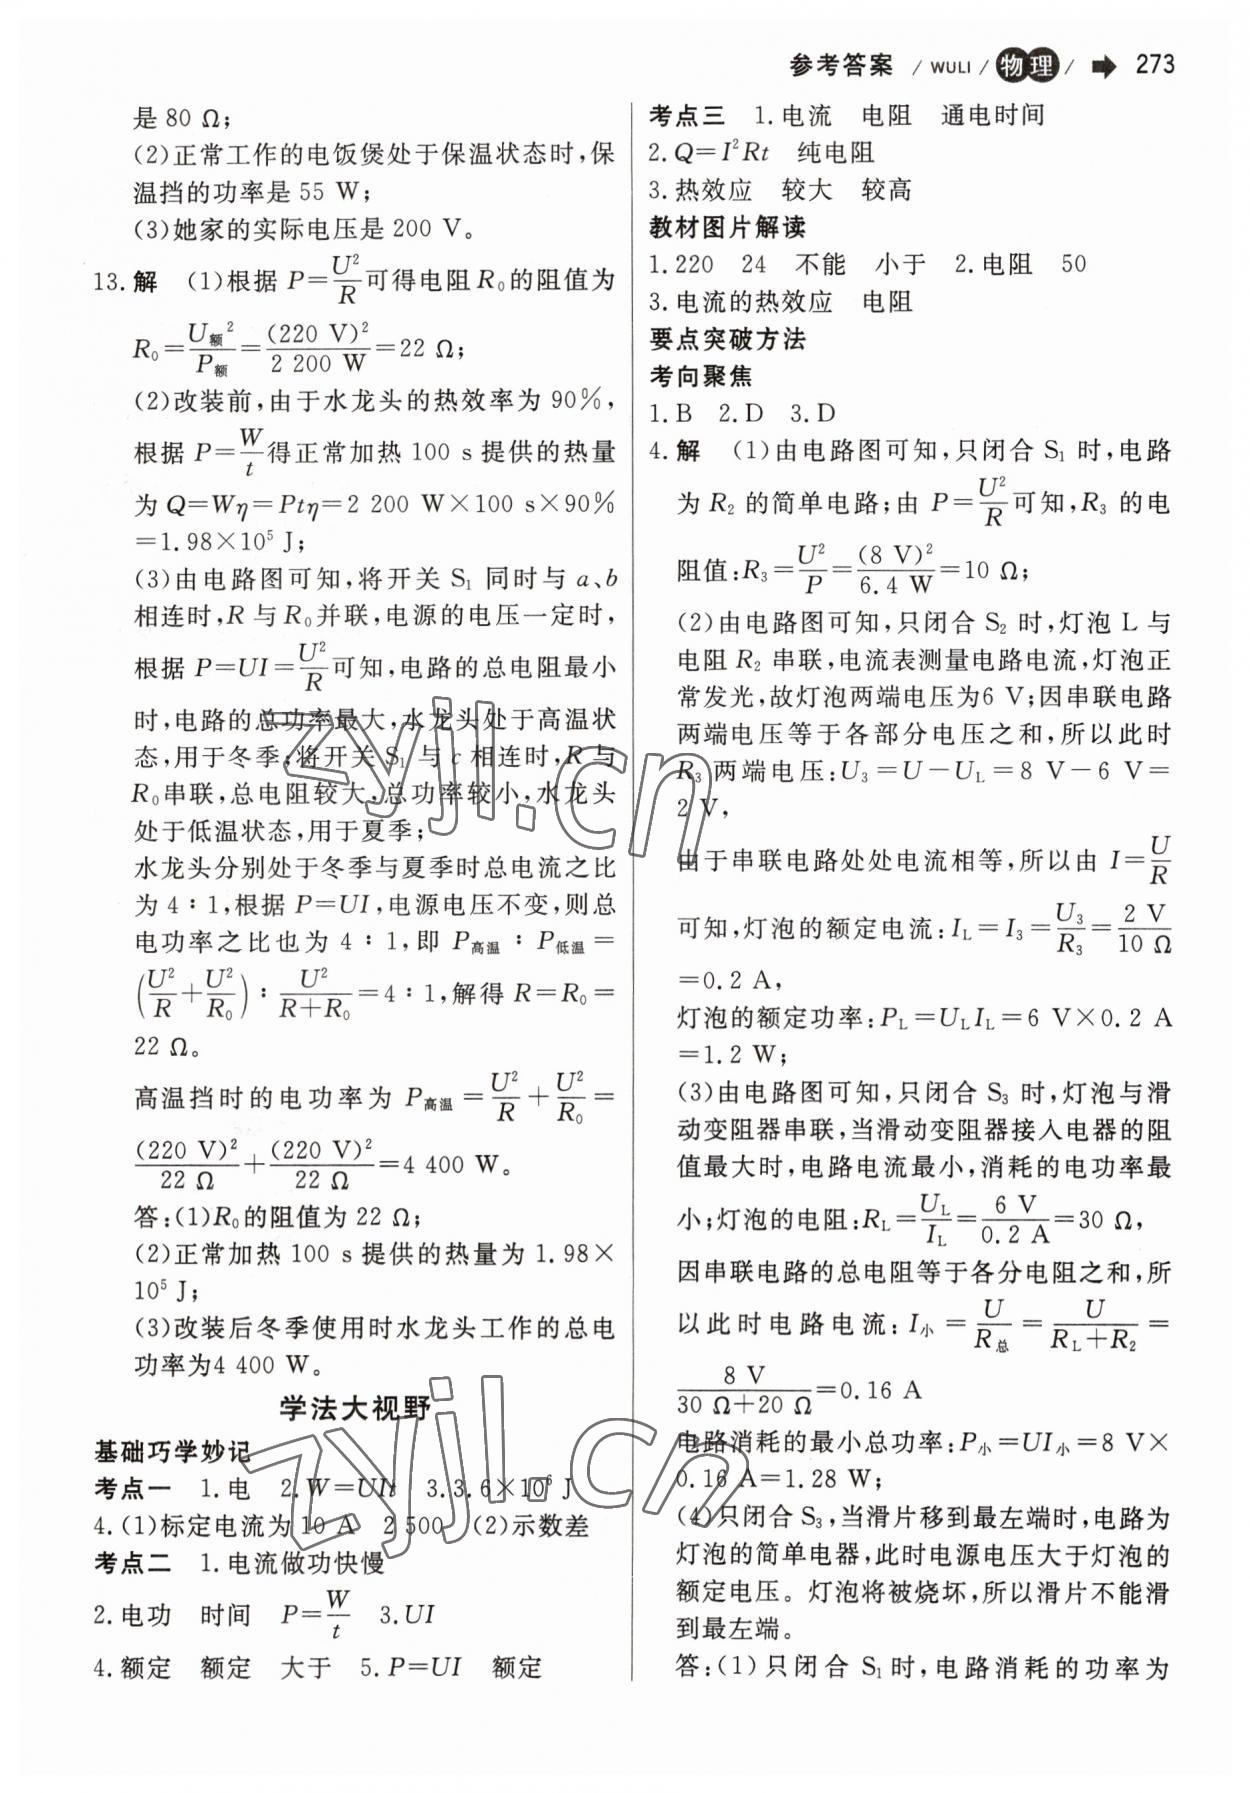 参考答案 / WULI / 物理 / 273
是 80 Ω；
(2)正常工作的电饭煲处于保温状态时，保
温挡的功率是 55 W；
(3)她家的实际电压是 200 V。
13. 解 (1)根据 P=U²/R可得电阻R₀的阻值为
R₀=U额²/P额=(220 V)²/2 200 W=22 Ω；
(2)改装前，由于水龙头的热效率为 90%，
根据 P=W/t得正常加热 100 s 提供的热量
为 Q=Wη=Ptη=2 200 W×100 s×90%
=1.98×10⁵ J；
(3)由电路图可知，将开关 S₁ 同时与 a、b
相连时，R 与 R₀并联，电源的电压一定时，
根据 P=UI=U²/R可知，电路的总电阻最小
时，电路的总功率最大，水龙头处于高温状
态，用于冬季；将开关 S₁ 与 c 相连时，R 与
R₀串联，总电阻较大，总功率较小，水龙头
处于低温状态，用于夏季；
水龙头分别处于冬季与夏季时总电流之比
为 4∶1，根据 P=UI，电源电压不变，则总
电功率之比也为 4∶1，即 P高温∶P低温=
(U²/R+U²/R₀)∶U²/(R+R₀)=4∶1，解得 R=R₀=
22 Ω。
高温挡时的电功率为 P高温=U²/R+U²/R₀=
(220 V)²/22 Ω+(220 V)²/22 Ω=4 400 W。
答：(1)R₀的阻值为 22 Ω；
(2)正常加热 100 s 提供的热量为 1.98×
10⁵ J；
(3)改装后冬季使用时水龙头工作的总电
功率为4 400 W。
学法大视野
基础巧学妙记
考点一 1.电 2.W=UIt 3.3.6×10⁶ J
4.(1)标定电流为 10 A 2 500 (2)示数差
考点二 1.电流做功快慢
2.电功 时间 P=W/t 3.UI
4.额定 额定 大于 5.P=UI 额定
考点三 1.电流 电阻 通电时间
2.Q=I²Rt 纯电阻
3.热效应 较大 较高
教材图片解读
1.220 24 不能 小于 2.电阻 50
3.电流的热效应 电阻
要点突破方法
考向聚焦
1.B 2.D 3.D
4.解 (1)由电路图可知，只闭合 S₁ 时，电路
为 R₂ 的简单电路；由 P=U²/R可知，R₃ 的电
阻值：R₃=U²/P=(8 V)²/6.4 W=10 Ω；
(2)由电路图可知，只闭合 S₂ 时，灯泡 L 与
电阻 R₂ 串联，电流表测量电路电流，灯泡正
常发光，故灯泡两端电压为6 V；因串联电路
两端电压等于各部分电压之和，所以此时
R₃ 两端电压：U₃=U－U_L=8 V－6 V=
2 V，
由于串联电路处处电流相等，所以由 I=U/R
可知，灯泡的额定电流：I_L=I₃=U₃/R₃=2 V/10 Ω
=0.2 A，
灯泡的额定功率：P_L=U_LI_L=6 V×0.2 A
=1.2 W；
(3)由电路图可知，只闭合 S₃ 时，灯泡与滑
动变阻器串联，当滑动变阻器接入电器的阻
值最大时，电路电流最小，消耗的电功率最
小；灯泡的电阻：R_L=U_L/I_L=6 V/0.2 A=30 Ω，
因串联电路的总电阻等于各分电阻之和，所
以此时电路电流：I小=U/R总=U/(R_L+R₂)=
8 V/(30 Ω+20 Ω)=0.16 A
电路消耗的最小总功率：P小=UI小=8 V×
0.16 A=1.28 W；
(4)只闭合 S₃，当滑片移到最左端时，电路为
灯泡的简单电器，此时电源电压大于灯泡的
额定电压。灯泡将被烧坏，所以滑片不能滑
到最左端。
答：(1)只闭合 S₁ 时，电路消耗的功率为
zyjl.cn
zyjl.cn